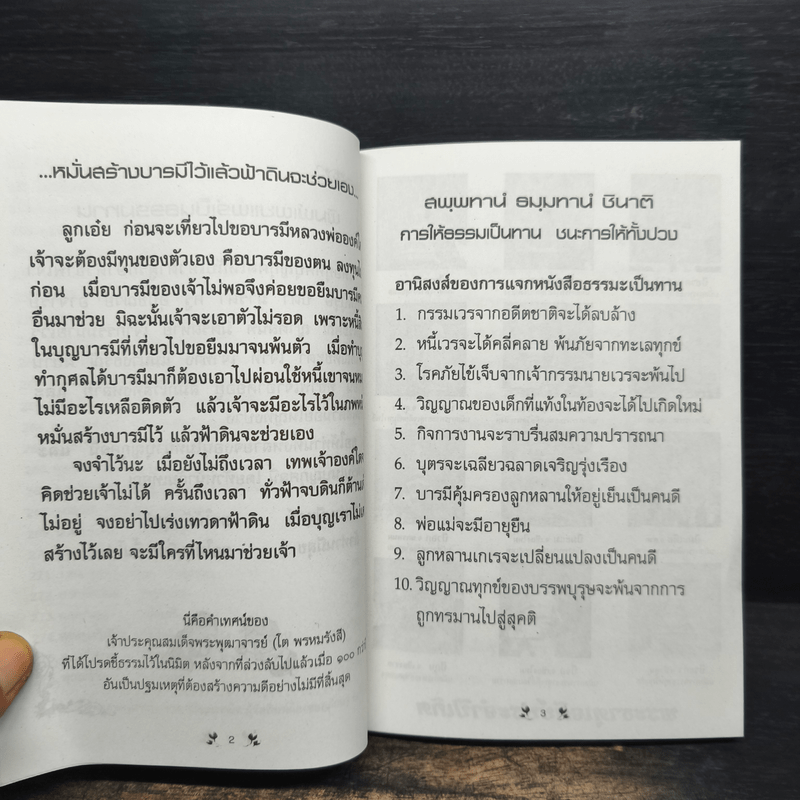 ...หมั่นสร้างบารมีไว้แล้วฟ้าดินจะช่วยเอง...
ลูกเอ๋ย ก่อนจะเที่ยวไปขอบารมีหลวงพ่อองค์ใ
เจ้าจะต้องมีทุนของตัวเอง คือบารมีของตน ลงทุน
ก่อน เมื่อบารมีของเจ้าไม่พอจึงค่อยขอยืมบารมี
อื่นมาช่วย มิฉะนั้นเจ้าจะเอาตัวไม่รอด เพราะหนี้
ในบุญบารมีที่เที่ยวไปขอยืมมาจนพ้นตัว เมื่อทำบุ
ทำกุศลได้บารมีมาก็ต้องเอาไปผ่อนใช้หนี้เขาจนหม
ไม่มีอะไรเหลือติดตัว แล้วเจ้าจะมีอะไรไว้ในภพห
หมั่นสร้างบารมีไว้ แล้วฟ้าดินจะช่วยเอง
จงจำไว้นะ เมื่อยังไม่ถึงเวลา เทพเจ้าองค์ใด
คิดช่วยเจ้าไม่ได้ ครั้นถึงเวลา ทั่วฟ้าจบดินก็ต้าน
ไม่อยู่ จงอย่าไปเร่งเทวดาฟ้าดิน เมื่อบุญเราไม่เ
สร้างไว้เลย จะมีใครที่ไหนมาช่วยเจ้า
นี่คือคำเทศน์ของ
เจ้าประคุณสมเด็จพระพุฒาจารย์ (โต พรหมรังสี)
ที่ได้โปรดชี้ธรรมไว้ในนิมิต หลังจากที่ล่วงลับไปแล้วเมื่อ ๑๐๐
อันเป็นปฐมเหตุที่ต้องสร้างความดีอย่างไม่มีที่สิ้นสุด
2
สพฺพทานํ ธมฺมทานํ ชินาติ
การให้ธรรมเป็นทาน ชนะการให้ทั้งปวง
อานิสงส์ของการแจกหนังสือธรรมะเป็นทาน
1. กรรมเวรจากอดีตชาติจะได้ลบล้าง
2. หนี้เวรจะได้คลี่คลาย พ้นภัยจากทะเลทุกข์
3. โรคภัยไข้เจ็บจากเจ้ากรรมนายเวรจะพ้นไป
4. วิญญาณของเด็กที่แท้งในท้องจะได้ไปเกิดใหม่
5. กิจการงานจะราบรื่นสมความปรารถนา
6. บุตรจะเฉลียวฉลาดเจริญรุ่งเรือง
7. บารมีคุ้มครองลูกหลานให้อยู่เย็นเป็นคนดี
8. พ่อแม่จะมีอายุยืน
9. ลูกหลานเกเรจะเปลี่ยนแปลงเป็นคนดี
10. วิญญาณทุกข์ของบรรพบุรุษจะพ้นจากการ
ถูกทรมานไปสู่สุคติ
3